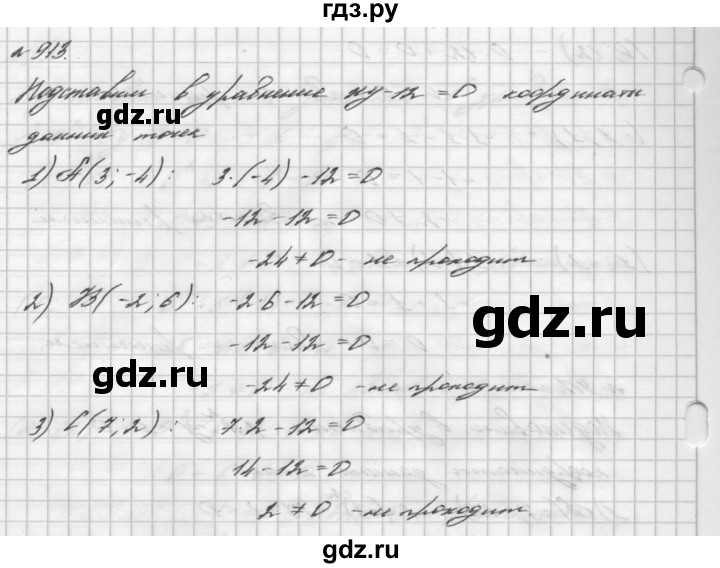 гдз.ру
№ 913.
Подставим в уравнение xy-12=0 координаты
данных точек
1) A(3;-4): 3·(-4)-12=0
-12-12=0
-24≠0 - не проходит
2) B(-2;6): -2·6-12=0
-12-12=0
-24≠0 - не проходит
3) C(7;2): 7·2-12=0
14-12=0
2≠0 - не проходит.
gdz.ru
gdz.ru
gdz.ru
gdz.ru
gdz.ru